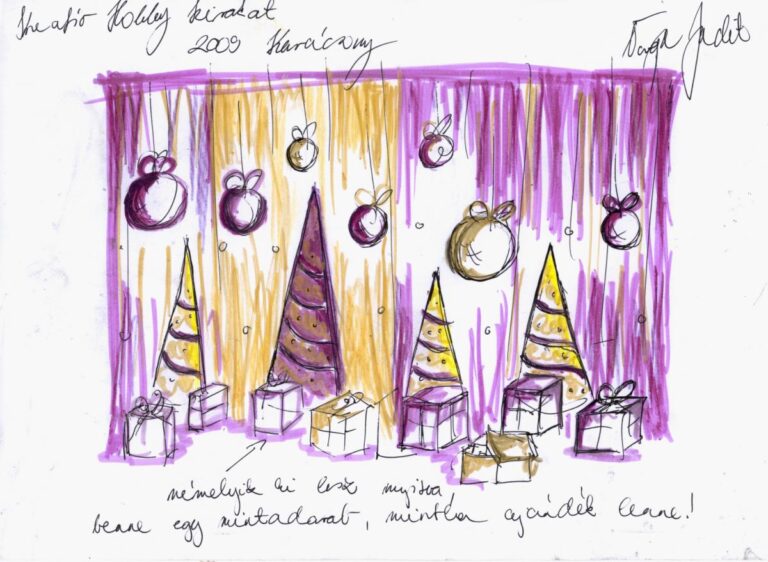 Kreatív Hobby kirakat
2009 Karácsony
Varga Judit
némelyik ki lesz nyitva,
benne egy mintadarab, mintha ajándék lenne!